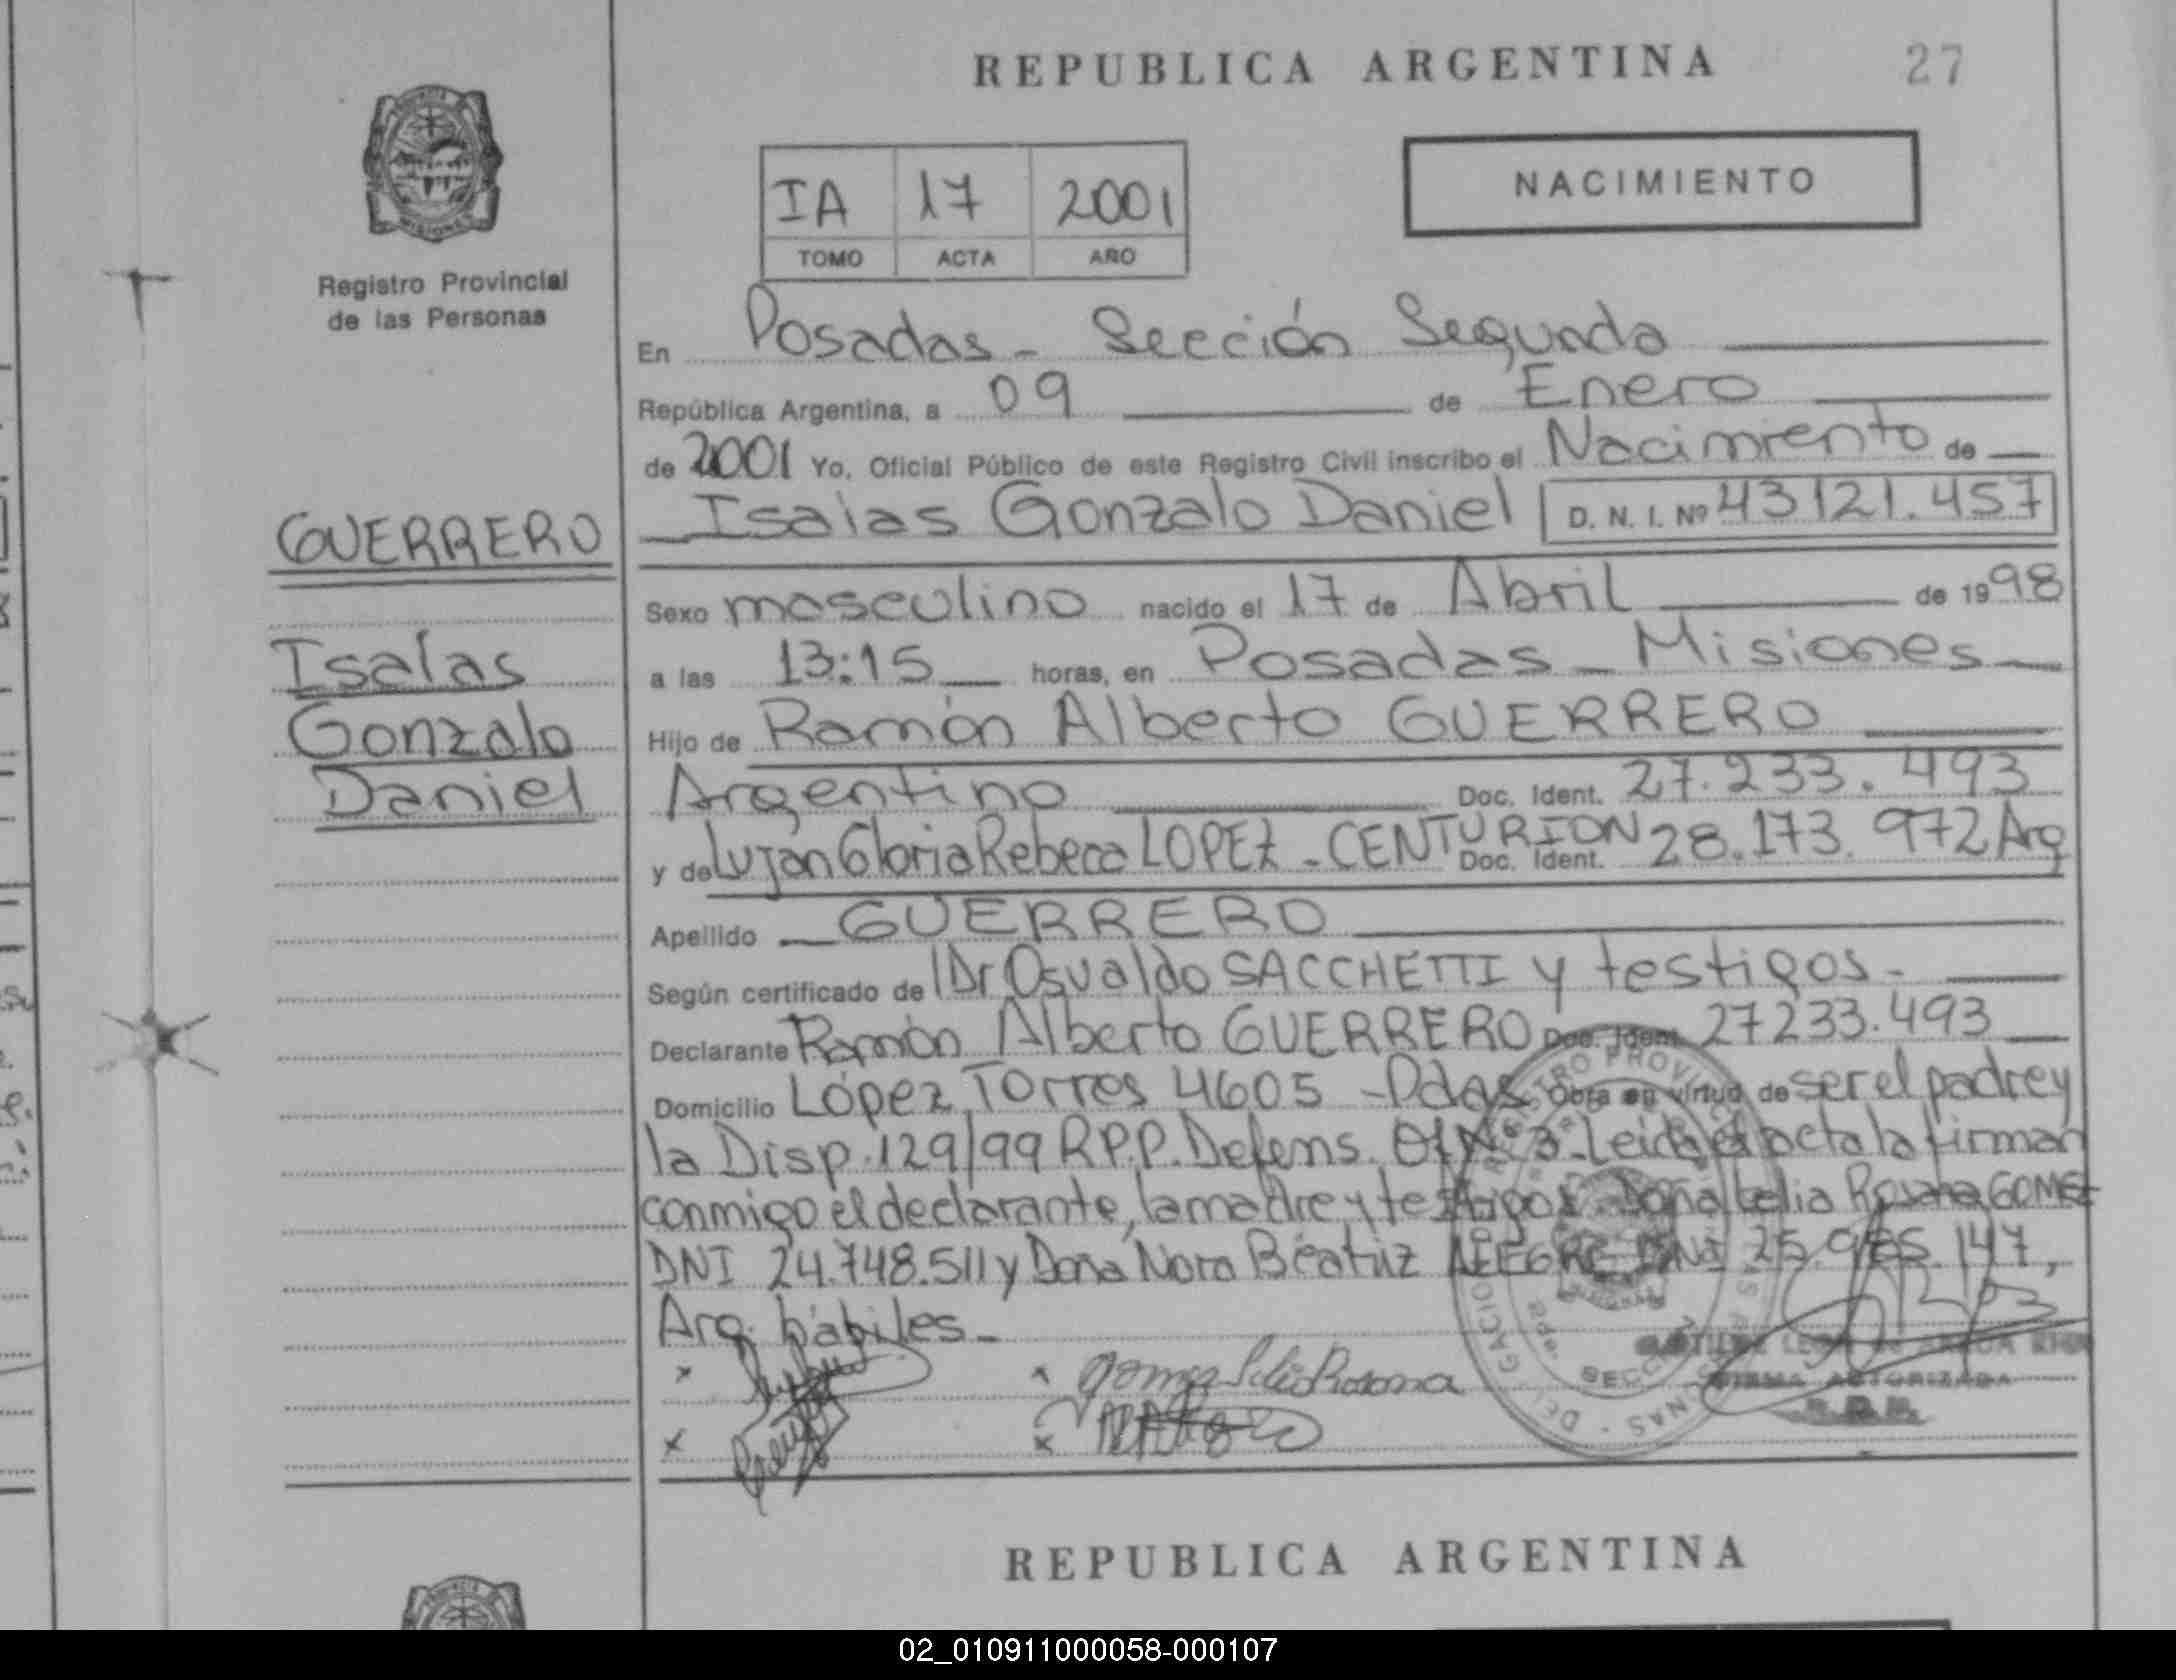 REPUBLICA ARGENTINA
27
Registro Provincial
de las Personas
IA 17 2001
TOMO ACTA AÑO
NACIMIENTO
En Posadas - Sección Segunda
República Argentina, a 09 de Enero
de 2001 Yo, Oficial Público de este Registro Civil inscribo el Nacimiento de
Isaías Gonzalo Daniel D. N. I. Nº 43121.457
GUERRERO
Isaías
Gonzalo
Daniel
Sexo masculino nacido el 17 de Abril de 1998
a las 13:15 horas, en Posadas - Misiones
Hijo de Ramón Alberto GUERRERO
Argentino Doc. Ident. 27.233.493
y de Lujan Gloria Rebeca LOPEZ - CENTURION Doc. Ident. 28.173.972 Arg
Apellido GUERRERO
Según certificado de Dr Osvaldo SACCHETTI y testigos -
Declarante Ramón Alberto GUERRERO Doc. Ident. 27233.493
Domicilio López Torres 4605 - Pdas Obra en virtud de ser el padre y
la Disp. 129/99 R.P.P. Defens. Of Nº 3 - Leida el acta la firman
conmigo el declarante, la madre y testigos Doña Celia Rosana GOMEZ
DNI 24.748.511 y Doña Nora Beatriz ALEGRE DNI 25.985.147,
Arg. hábiles -
Gomez Celia Rosana
SECC
FIRMA AUTORIZADA
REPUBLICA ARGENTINA
02_010911000058-000107